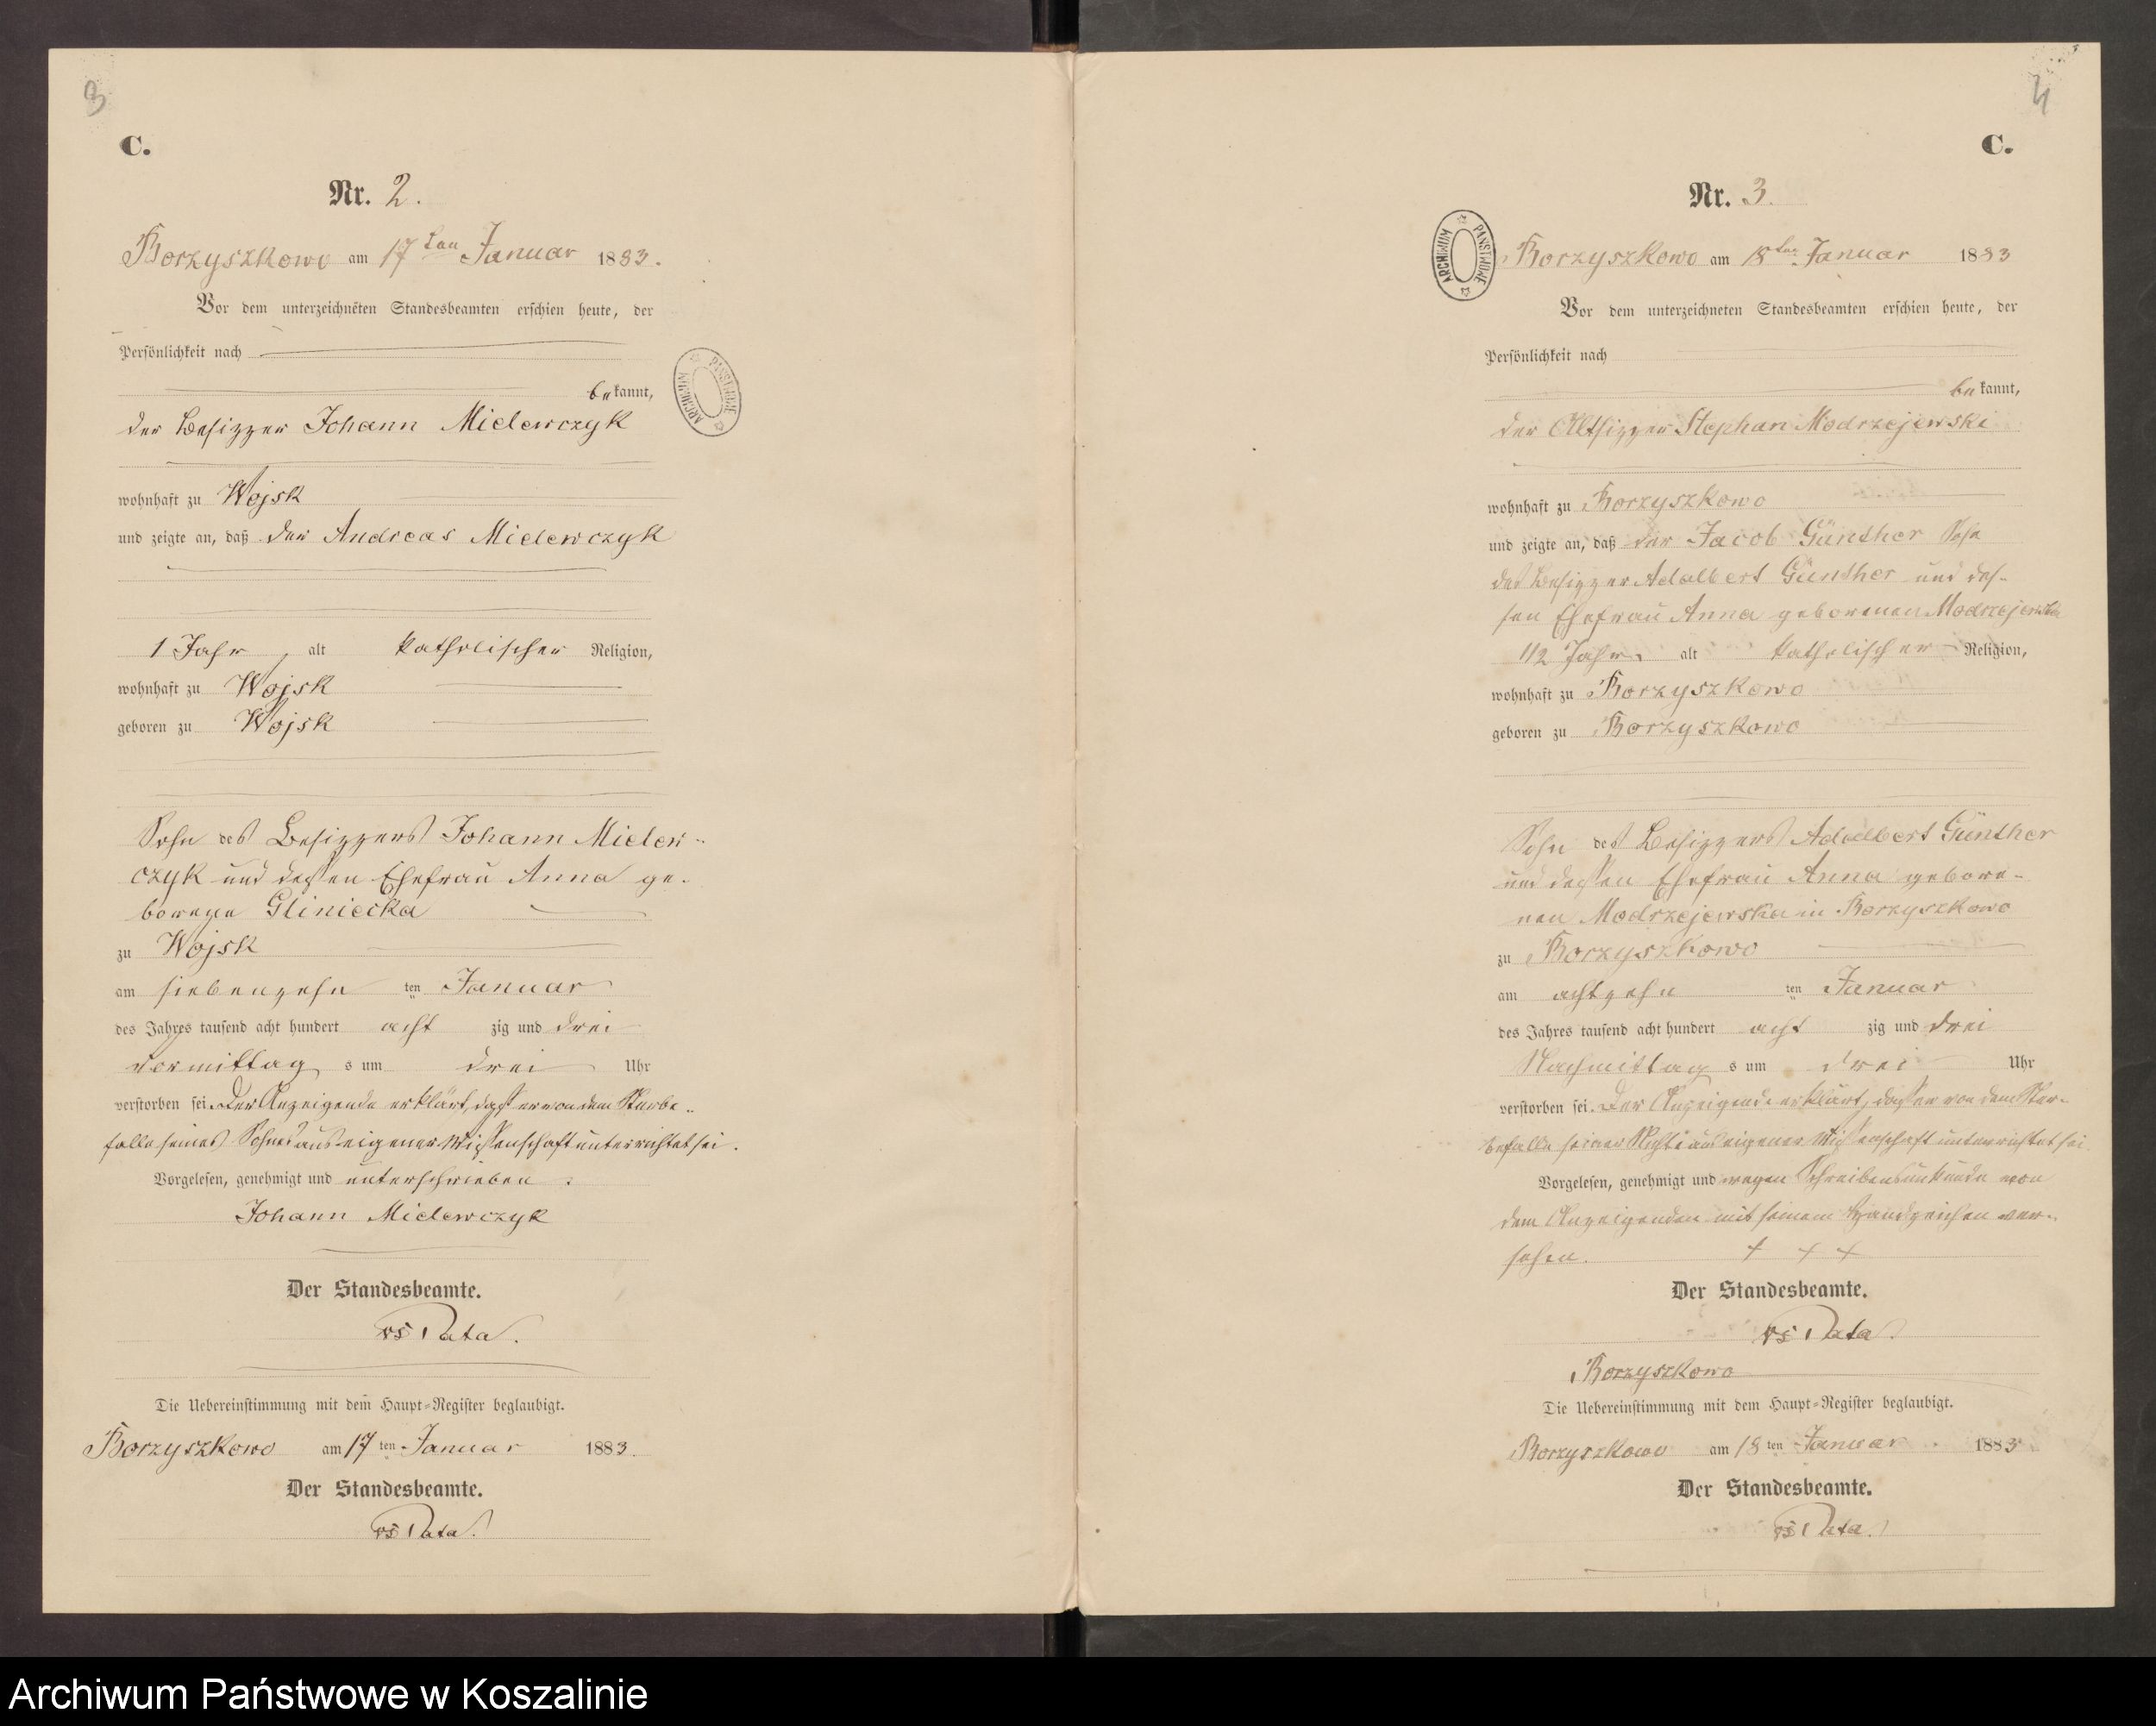 3
C.
Nr. 2.
Borzyszkowo am 17ten Januar 1883.
Vor dem unterzeichneten Standesbeamten erschien heute, der
Persönlichkeit nach
bekannt,
der Besizzer Johann Mielewczyk
wohnhaft zu Wojsk
und zeigte an, daß der Andreas Mielewczyk
1 Jahr, alt katholischer Religion,
wohnhaft zu Wojsk
geboren zu Wojsk
Sohn des Besizzers Johann Mielew-
czyk und dessen Ehefrau Anna ge-
borene Gliniecka
zu Wojsk
am siebenzehn ten Januar
des Jahres tausend acht hundert acht zig und drei
vormittag s um drei Uhr
verstorben sei. Der Anzeigende erklärt, dass er von dem Sterbe-
falle seines Sohnes aus eigener Wissenschaft unterrichtet sei.
Vorgelesen, genehmigt und unterschrieben.
Johann Mielewczyk
Der Standesbeamte.
Pata.
Die Uebereinstimmung mit dem Haupt-Register beglaubigt.
Borzyszkowo am 17 ten Januar 1883.
Der Standesbeamte.
Pata.
ARCHIWUM PAŃSTWOWE
4
C.
Nr. 3.
Borzyszkowo am 18ten Januar 1883
Vor dem unterzeichneten Standesbeamten erschien heute, der
Persönlichkeit nach
bekannt,
der Altsizzer Stephan Modrzejewski
wohnhaft zu Borzyszkowo
und zeigte an, daß der Jacob Günther Sohn
des Besizzer Adalbert Günther und des-
sen Ehefrau Anna geborenen Modrzejewska
1/2 Jahr, alt katholischer Religion,
wohnhaft zu Borzyszkowo
geboren zu Borzyszkowo
Sohn des Besizzers Adalbert Günther
und dessen Ehefrau Anna gebore-
nen Modrzejewska in Borzyszkowo
zu Borzyszkowo
am achtzehn ten Januar
des Jahres tausend acht hundert acht zig und drei
Nachmittag s um drei Uhr
verstorben sei. Der Anzeigende erklärt, dass er von dem Ster-
befalle seiner aus eigener Wissenschaft unterrichtet sei.
Vorgelesen, genehmigt und wegen Schreibensunkunde von
dem Anzeigenden mit seinem Handzeichen ver-
sehen. + + +
Der Standesbeamte.
Pata.
Borzyszkowo
Die Uebereinstimmung mit dem Haupt-Register beglaubigt.
Borzyszkowo am 18 ten Januar 1883
Der Standesbeamte.
Pata.
ARCHIWUM PAŃSTWOWE
Archiwum Państwowe w Koszalinie